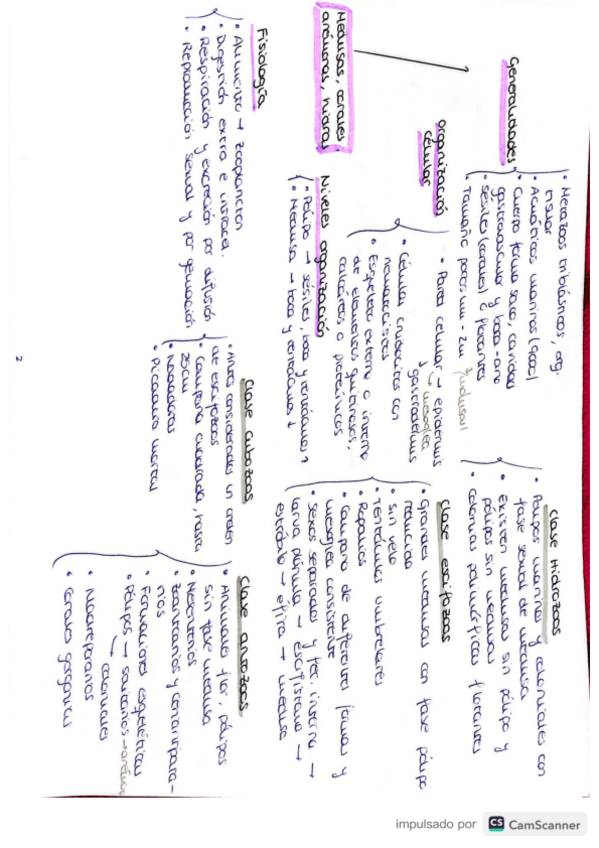 Medusas, corales,
anémonas, hidras
Generalidades
• Metazoos triblásticos, org.
tisular
• Acuáticos marinos (9000)
• Cuerpo forma saco, cavidad
gastrovascular y boca-ano
• sésiles (corales) o flotantes
(medusas)
Tamaño pocos mm - 2m
organización
celular
• Pared celular → epidermis
↳ mesoglea
↓ gastrodermis
• Células cnidocitos con
nematocistos
• Esqueleto externo o interno
de elementos quitinosos,
calcáreos o proteínicos
Niveles organización
• Pólipo → sésiles, boca y tentáculos ↑
• Medusa → boca y tentáculos ↓
Fisiología
• Alimento → zooplancton
• Digestión extra e intrace.
• Respiración y excreción por difusión
• Reproducción sexual y por gemación
Clase Hidrozoos
• Pólipos marinos y coloniales con
fase sexual de medusa
• Existen medusas sin pólipo y
pólipos sin medusa
• colonias polimórficas flotantes
Clase escifozoos
• Grandes medusas con fase pólipo
reducida
• sin velo
• Tentáculos umbrelares
• Ropalios
• Campana de diferentes formas y
mesoglea consistente
• Sexos separados y fec. interna →
larva plánula → escifistoma →
estróbilo → éfira → medusa
Clase cubozoos
• Antes considerados un orden
de escifozoos
• Campana cuadrada, hasta
25cm
• Nadadoras
• Picadura mortal
Clase antozoos
• Animales flor, pólipos
sin fase medusa
• Mesenterios
• Zoantarios y ceriantipata-
rios
• Formaciones esqueléticas
• Pólipos → solitarios →
↳ coloniales
• Corales gorgonias
2
impulsado por CS CamScanner